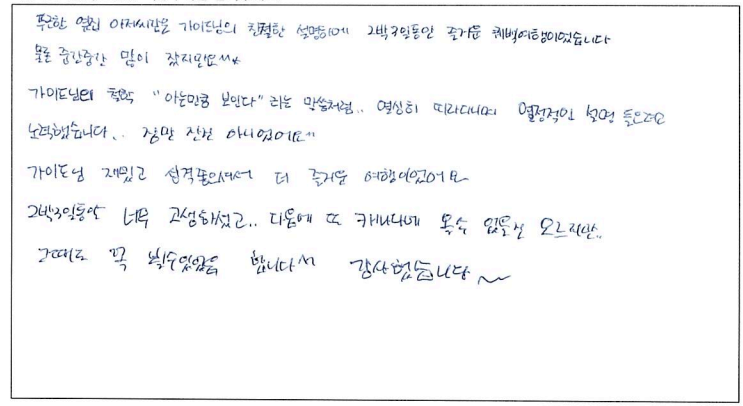 푸근한 옆집 아저씨같은 가이드님의 친절한 설명하에 2박3일동안 즐거운 퀘백여행이었습니다
물론 중간중간 많이 잤지만요^^*
가이드님의 철학 "아는만큼 보인다" 라는 말씀처럼.. 열심히 따라다니며 열정적인 설명 들으려고
노력했습니다.. 정말 진건 아니었어요^^
가이드님 재밌고 성격좋으셔서 더 즐거운 여행이었어요
2박3일동안 너무 고생하셨고.. 다음에 또 캐나다에 올수 있을진 모르지만..
그때도 꼭 뵐수있었음 합니다^^ 감사했습니다~